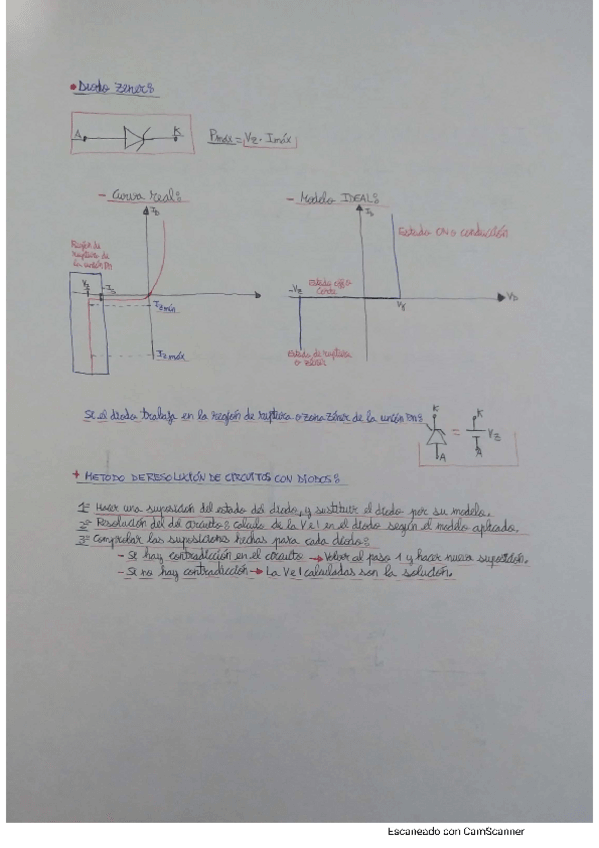 • Diodo zener:
A K Pmáx = Vz · Imáx
- Curva real: - Modelo IDEAL:
ID ID
Región de
ruptura de
la unión PN
Estado ON o conducción
Vz Is
-Vz Estado off o
corte
Vγ VD
Izmín
Izmáx
Estado de ruptura
o zéner
Si el diodo trabaja en la región de ruptura o zona zéner de la unión PN:
K K
= Vz
A A
+ METODO DE RESOLUCIÓN DE CIRCUITOS CON DIODOS:
1º Hacer una suposición del estado del diodo, y sustituir el diodo por su modelo.
2º Resolución del del circuito: calculo de la V e I en el diodo según el modelo aplicado.
3º Comprobar las suposiciones hechas para cada diodo:
- Si hay contradicción en el circuito → Volver al paso 1 y hacer nueva suposición.
- Si no hay contradicción → La V e I calculadas son la solución.
Escaneado con CamScanner